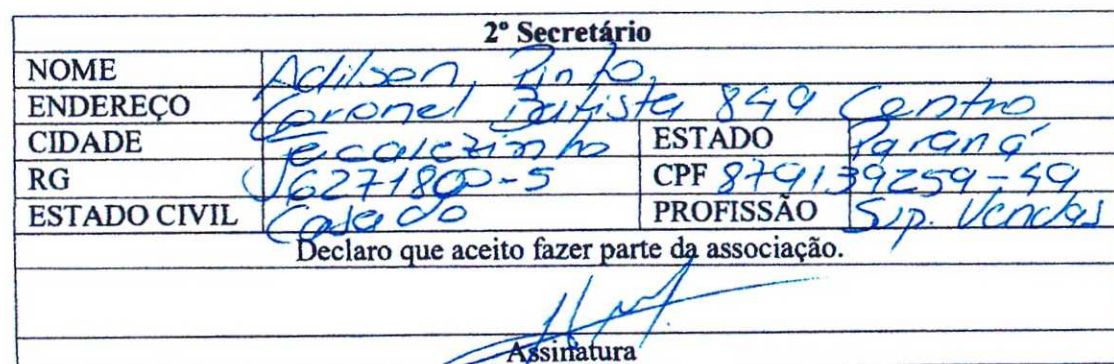 2º Secretário
NOME Adilson Pinto
ENDEREÇO Coronel Batista 849 Centro
CIDADE ESTADO Paraná
RG 6271800-5 CPF 879139259-49
ESTADO CIVIL Casado PROFISSÃO Sup. Vendas
Declaro que aceito fazer parte da associação.
Assinatura